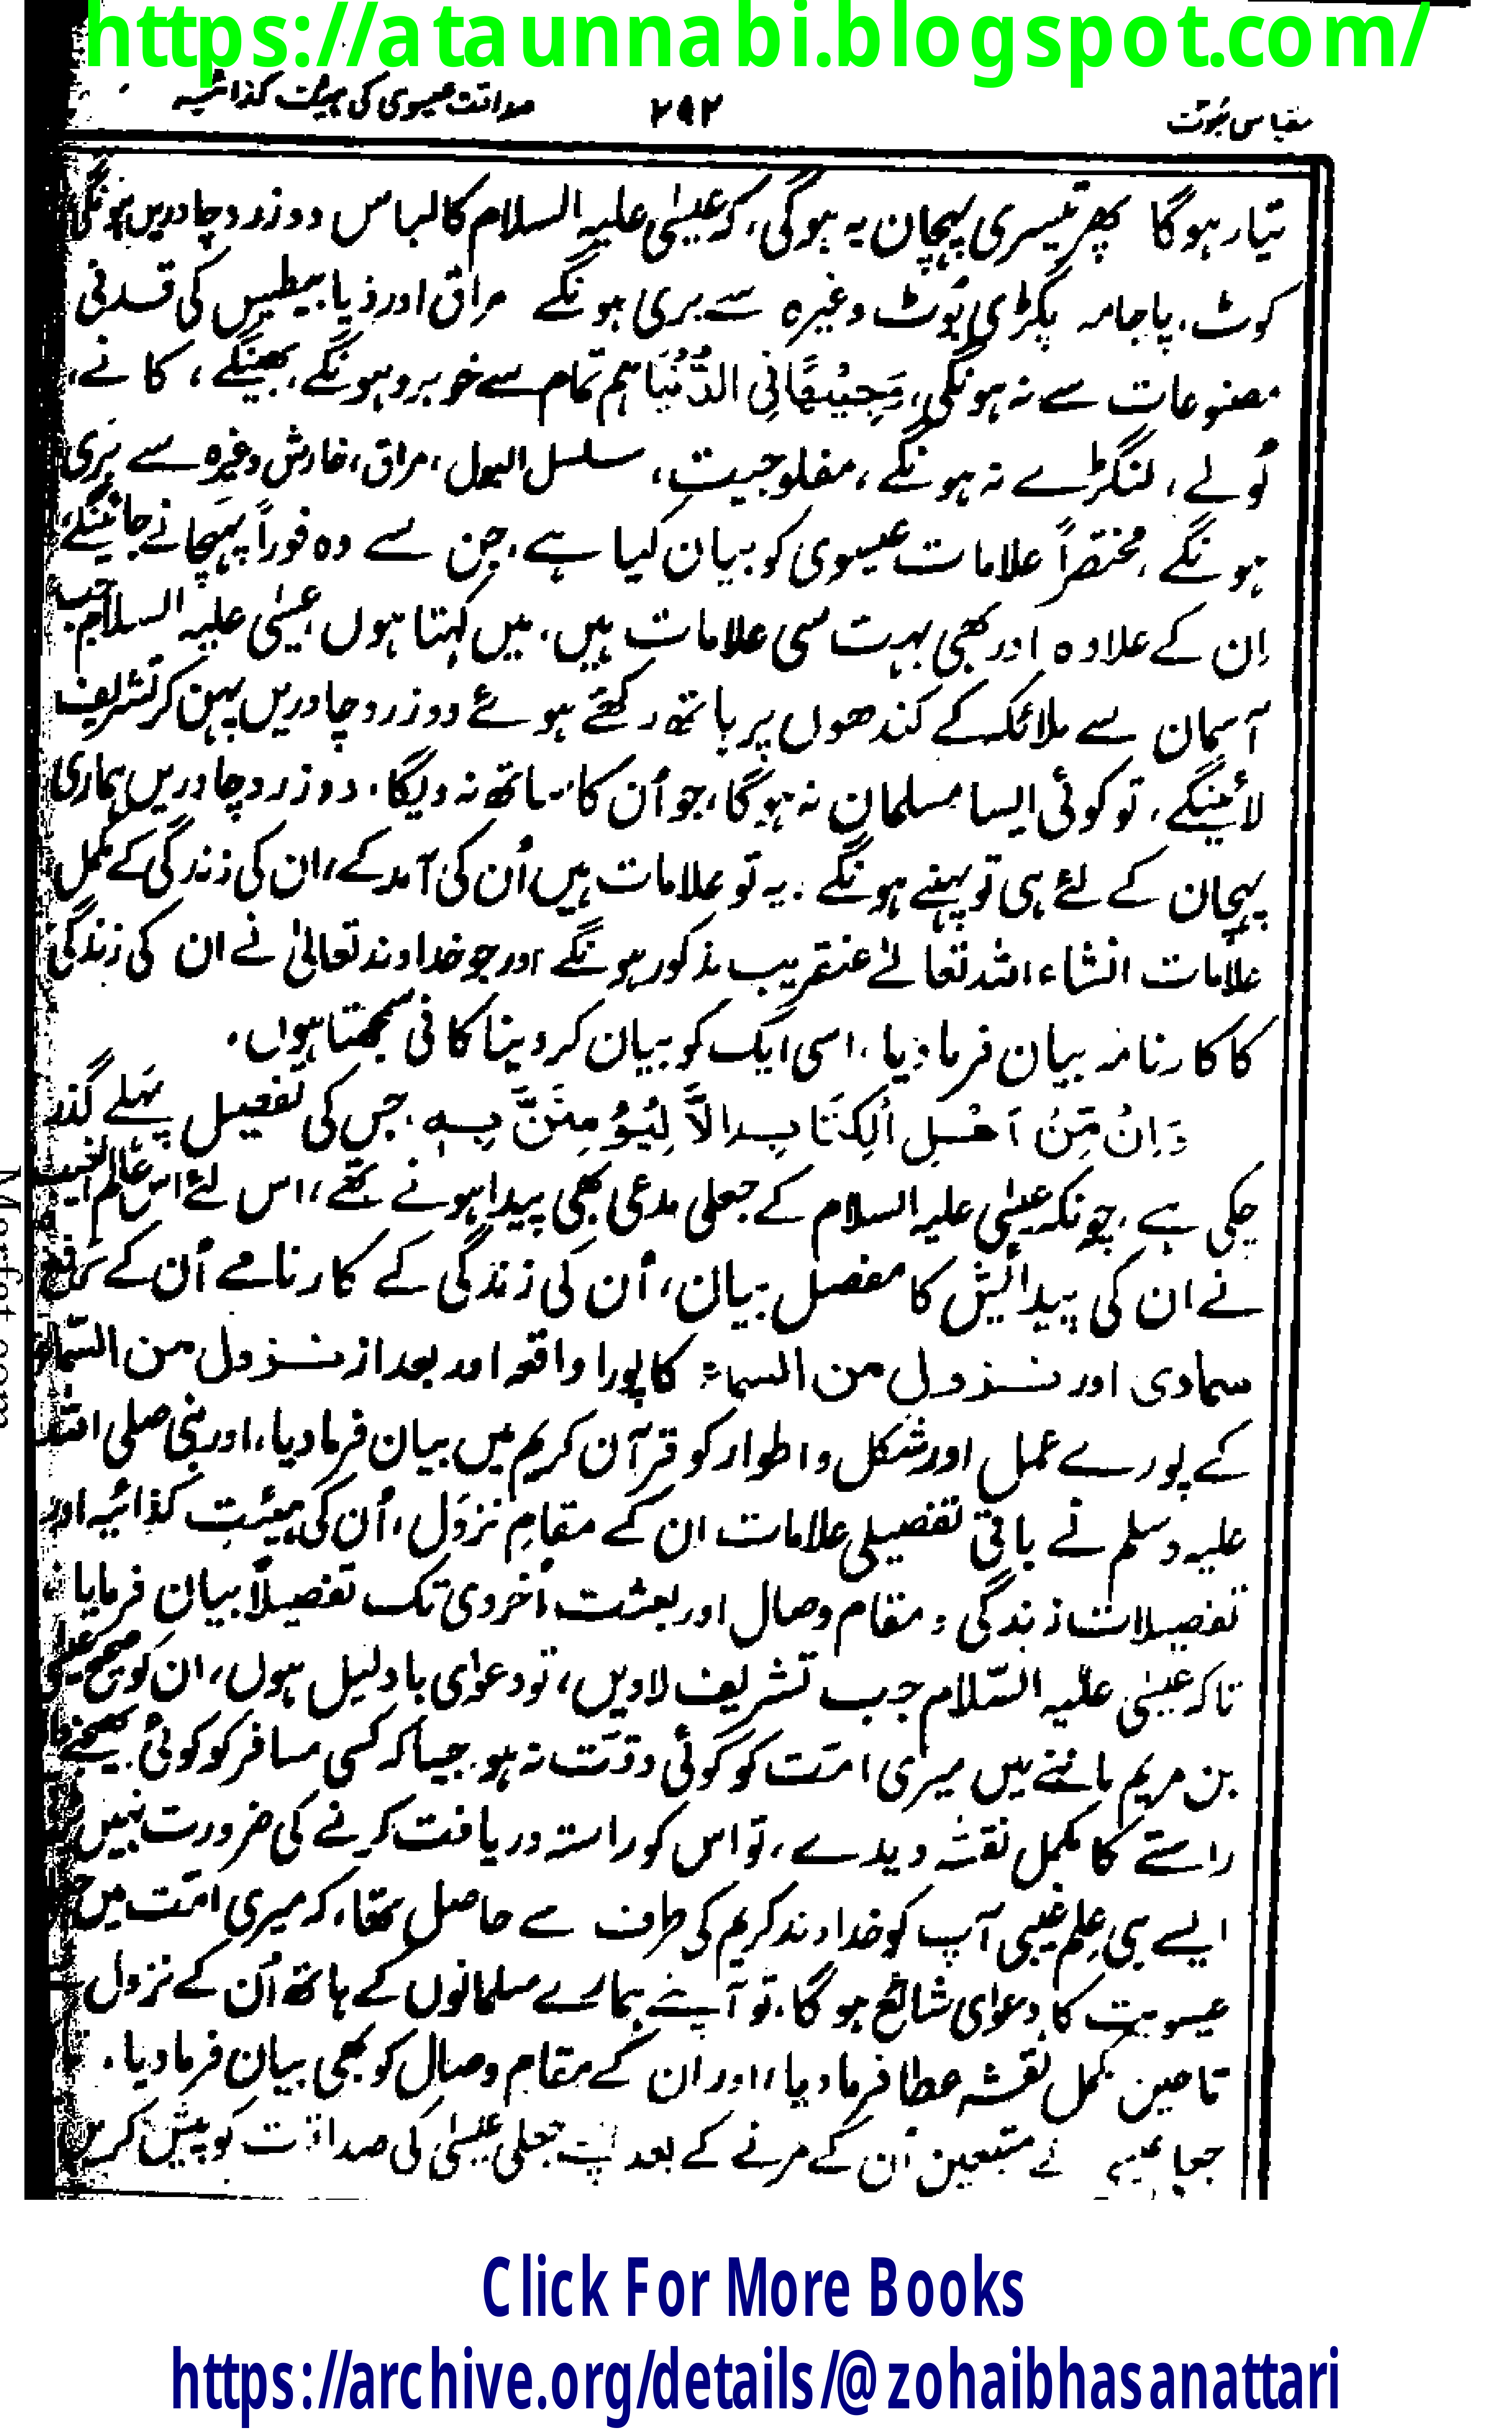 https://ataunnabi.blogspot.com/
مقیاس نبوت ۲۹۲ صداقت عیسوی کی ہیئت کذائیہ
تیار ہوگا پھر تیسری پہچان یہ ہوگی، کہ عیسٰی علیہ السلام کا لباس دو زرد چادریں ہونگی
کوٹ، پاجامہ پگڑی بُوٹ وغیرہ سے بری ہونگے مراق اور ذیابیطیس کی قدرتی
مصنوعات سے نہ ہونگی، وَجِیْھًا فِی الدُّنْیَا ہم تمام سے خوبرو ہونگے، بھینگے، کانے،
لُولے، لنگڑے نہ ہونگے، مفلوجیت، سلسل البول، مراق، خارش وغیرہ سے بَری
ہونگے، مختصراً علامات عیسوی کو بیان کیا ہے، جن سے وہ فوراً پہچانے جائینگے
اِن کے علاوہ اور بھی بہت سی علامات ہیں، میں کہتا ہوں، عیسٰی علیہ السلام جب
آسمان سے ملائکہ کے کندھوں پر ہاتھ رکھتے ہوئے دو زرد چادریں پہن کر تشریف
لائینگے، تو کوئی ایسا مسلمان نہ ہوگا، جو اُن کا ساتھ نہ دیگا، دو زرد چادریں ہماری
پہچان کے لئے ہی تو پہنے ہونگے، یہ تو علامات ہیں اُن کی آمد کے، ان کی زندگی کے مکمل
علامات انشاء اللہ تعالےٰ عنقریب مذکور ہونگے اور جو خداوند تعالیٰ نے ان کی زندگی
کا کارنامہ بیان فرما دیا، اسی ایک کو بیان کر دینا کافی سمجھتا ہوں۔
وَاِنْ مِّنْ اَھْلِ الْکِتَابِ اِلَّا لَیُؤْمِنَنَّ بِہٖ، جس کی تفصیل پہلے گذر
چکی ہے، چونکہ عیسٰی علیہ السلام کے جعلی مدعی بھی پیدا ہونے تھے، اس لئے اس عالم الغیب
نے ان کی پیدائیش کا مفصل بیان، اُن کی زندگی کے کارنامے اُن کے رفع
سماوی اور نزول من السماء کا پورا واقعہ اور بعد از نزول من السّماء
کے پورے عمل اور شکل و اطوار کو قرآن کریم میں بیان فرما دیا، اور نبی صلی اللہ
علیہ وسلم نے باقی تفصیلی علامات ان کے مقامِ نزول، اُن کی ہیئت کذائیہ اور
تفصیلات زندگی، مقام وصال اور بعثت اُخروی تک تفصیلاً بیان فرمایا
تاکہ عیسٰی علیہ السّلام جب تشریف لاویں، تو دعوٰی با دلیل ہوں، ان کو صحیح عیسٰی
بن مریم ماننے میں میری امّت کو کوئی دِقّت نہ ہو، جیسا کہ کسی مسافر کو کوئی بھیجنے
راستے کا مکمل نقشہ دیدے، تو اس کو راستہ دریافت کرنے کی ضرورت نہیں
ایسے ہی عِلم غیبی آپ کو خداوند کریم کی طرف سے حاصل تھا، کہ میری امّت میں
عیسویت کا دعوٰی شائع ہوگا، تو آپنے ہمارے مسلمانوں کے ہاتھ اُن کے نزول
تاحین مکمل نقشہ عطا فرما دیا، اور ان کے مقام وصال کو بھی بیان فرما دیا۔
نے متبعین اُن کے مرنے کے بعد جعلی عیسٰی کی صداقت کو پیش کریں
Click For More Books
https://archive.org/details/@zohaibhasanattari